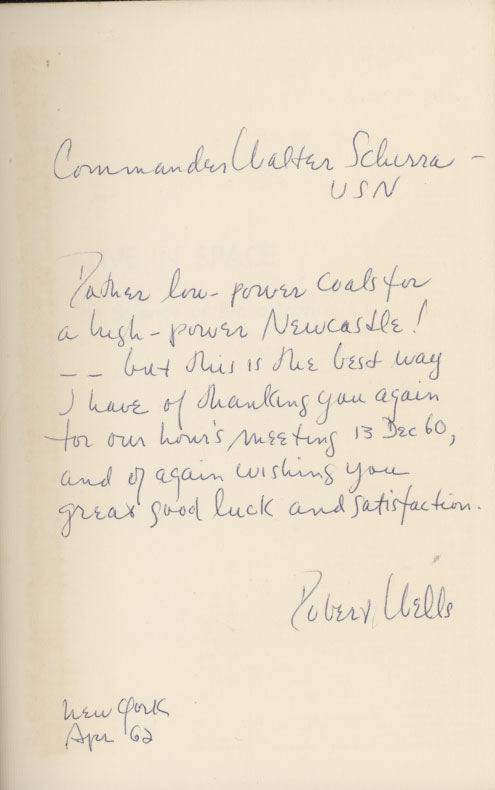 Commander Walter Schirra -
USN
Rather low-power coals for
a high-power Newcastle!
-- but this is the best way
I have of thanking you again
for our hour's meeting 13 Dec 60,
and of again wishing you
great good luck and satisfaction.
Robert Wells
New York
Apr 62